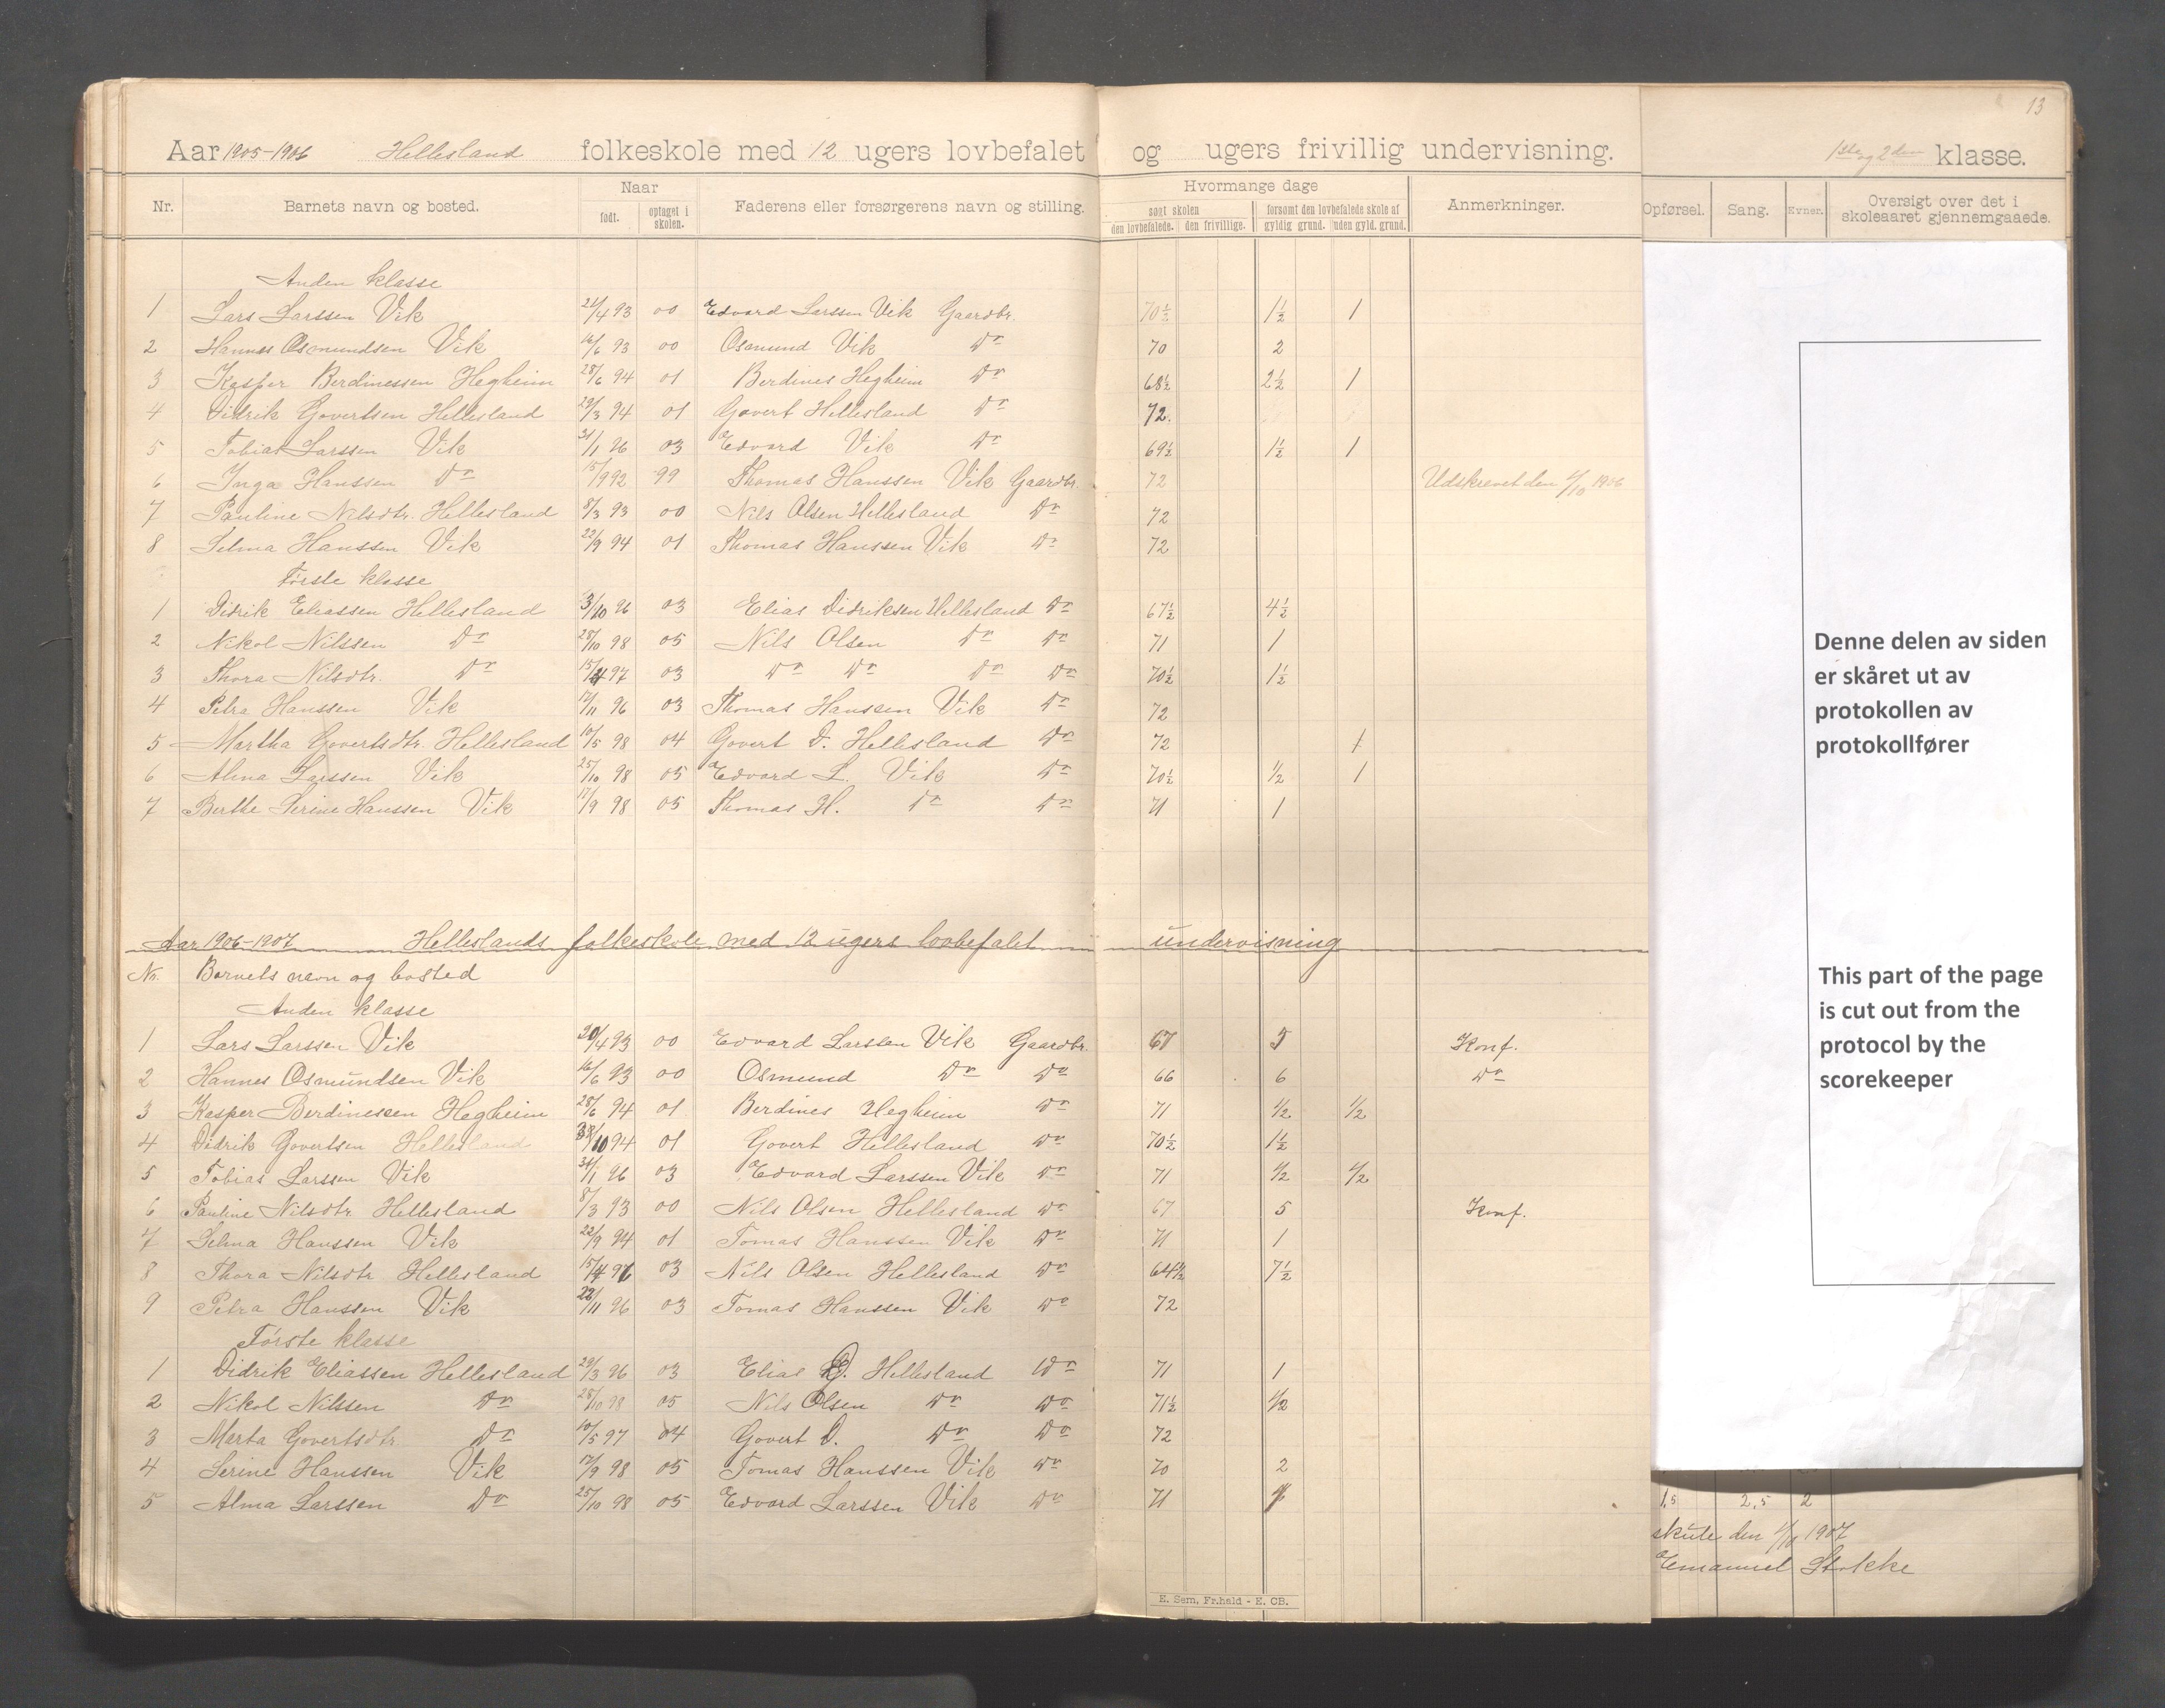 13
Aar 1905-1906 Hellesland folkeskole med 12 ugers lovbefalet og ugers frivillig undervisning. 1ste og 2den klasse.
Nr. Barnets navn og bosted. Naar født. optaget i skolen. Faderens eller forsørgerens navn og stilling. Hvormange dage søgt skolen den lovbefalede. den frivillige. forsømt den lovbefalede skole af gyldig grund. uden gyld. grund. Anmerkninger. Opførsel. Sang. Evner. Oversigt over det i skoleaaret gjennemgaaede.
Anden klasse
1 Lars Larssen Vik 21/4 93 00 Edvard Larssen Vik Gaardbr. 70½ 1½ 1
2 Hannes Osmundsen Vik 16/6 93 00 Osmund Vik Do 70 2
3 Kasper Berdinessen Hegheim 28/6 94 01 Berdines Hegheim Do 68½ 2½ 1
4 Didrik Govertsen Hellesland 29/3 94 01 Govert Hellesland Do 72.
5 Tobias Larssen Vik 31/1 96 03 Edvard Vik Do 69½ 1½ 1
6 Inga Hanssen Do 15/9 92 99 Thomas Hanssen Vik Gaardbr. 72 Udskrevet den 4/10 1906
7 Pauline Nilsdtr. Hellesland 8/3 93 00 Nils Olsen Hellesland Do 72
8 Selma Hanssen Vik 22/9 94 01 Thomas Hanssen Vik Do 72
Første klasse
1 Didrik Eliassen Hellesland 3/10 96 03 Elias Didriksen Hellesland Do 67½ 4½
2 Nikol Nilssen Do 28/10 98 05 Nils Olsen Do Do 71 1
3 Thora Nilsdtr. Do 15/4 97 03 Do Do Do Do 70½ 1½
4 Petra Hanssen Vik 12/11 96 03 Thomas Hanssen Vik Do 72
5 Martha Govertsdtr. Hellesland 10/5 98 04 Govert D. Hellesland Do 72 1
6 Alma Larssen Vik 25/10 98 05 Edvard L. Vik Do 70½ ½ 1
7 Berthe Serine Hanssen Vik 17/9 98 05 Thomas H. Do Do 71 1
Aar 1906-1907 Helleslands folkeskole med 12 ugers lovbefalet undervisning
Nr. Barnets navn og bosted
Anden klasse
1 Lars Larssen Vik 4 93 00 Edvard Larssen Vik Gaardbr. 67 5 Konf.
2 Hannes Osmundsen Vik 16/6 93 00 Osmund Do Do 66 6 Do
3 Kasper Berdinessen Hegheim 28/6 94 01 Berdines Hegheim Do 71 ½ ½
4 Didrik Govertsen Hellesland 10 94 01 Govert Hellesland Do 70½ 1½
5 Tobias Larssen Vik 31/1 96 03 Edvard Larssen Vik Do 71 ½ ½
6 Pauline Nilsdtr Hellesland 8/3 93 00 Nils Olsen Hellesland Do 67 5 Konf.
7 Selma Hanssen Vik 22/9 94 01 Tomas Hanssen Vik Do 71 1
8 Thora Nilsdtr Hellesland 15/4 97 03 Nils Olsen Hellesland Do 64½ 7½
9 Petra Hanssen Vik 22/11 96 03 Tomas Hanssen Vik Do 72
Første klasse
1 Didrik Eliassen Hellesland 29/3 96 03 Elias D. Hellesland Do 71 1
2 Nikol Nilssen Do 28/10 98 05 Nils Olsen Do Do 71½ ½
3 Marta Govertsdtr Do 10/5 97 04 Govert D. Do Do 72
4 Serine Hanssen Vik 17/9 98 05 Tomas Hanssen Vik Do 70 2
5 Alma Larssen Do 25/10 98 05 Edvard Larssen Vik Do 71 1
E. Sem, Fr.hald - E. CB.
Denne delen av siden
er skåret ut av
protokollen av
protokollfører
This part of the page
is cut out from the
protocol by the
scorekeeper
1,5 2,5 2
skute den 1/10 1907
Emanuel Stokke